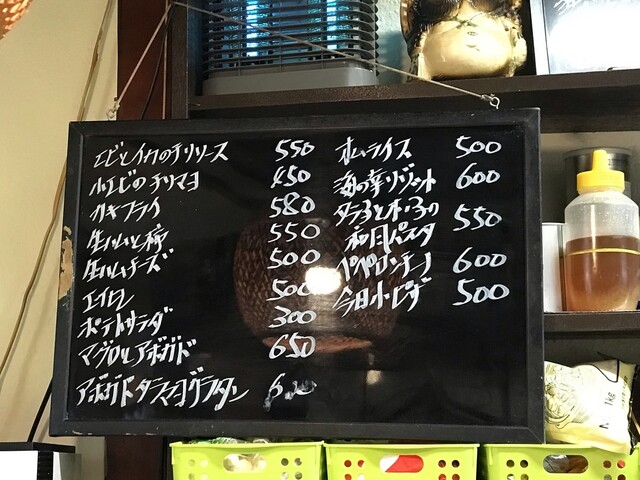 エビとイカのチリソース 550
小エビのチリマヨ 450
カキフライ 580
生ハムと柿 550
生ハムチーズ 500
エイヒレ 500
ポテトサラダ 300
マグロとアボガド 650
アボガドタラマヨグラタン
オムライス 500
海の幸リゾット 600
タラ子とキノコの
和風パスタ 550
ペペロンチーノ 600
今日のピザ 500
1kg